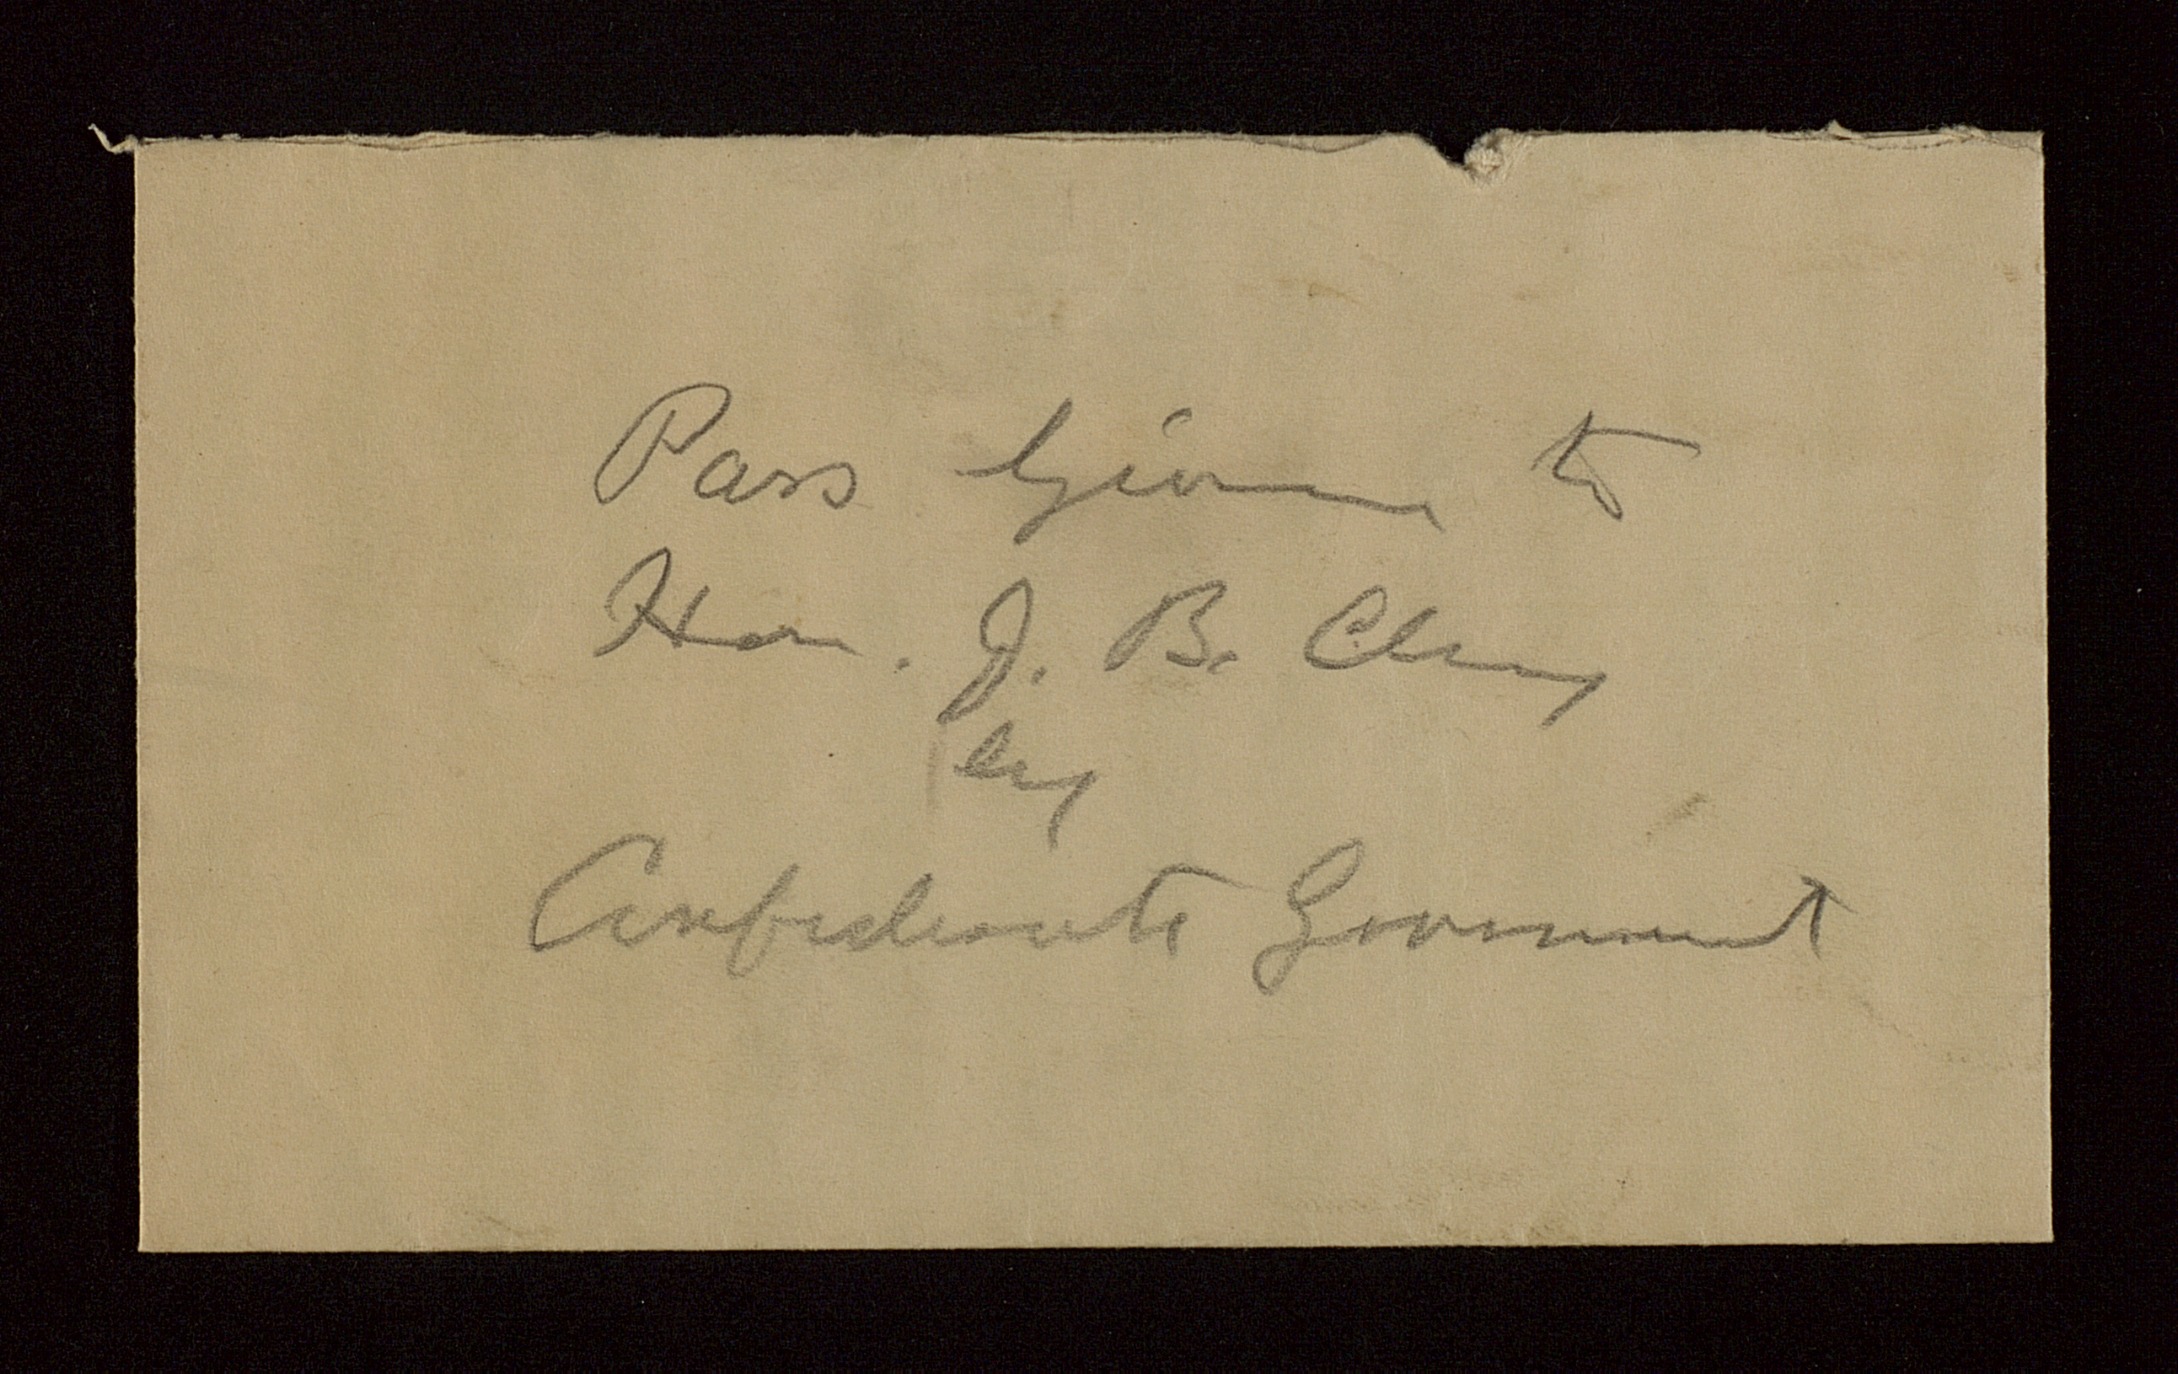 Pass Given to
Hon. J. B. Clay
by
Confederate Government